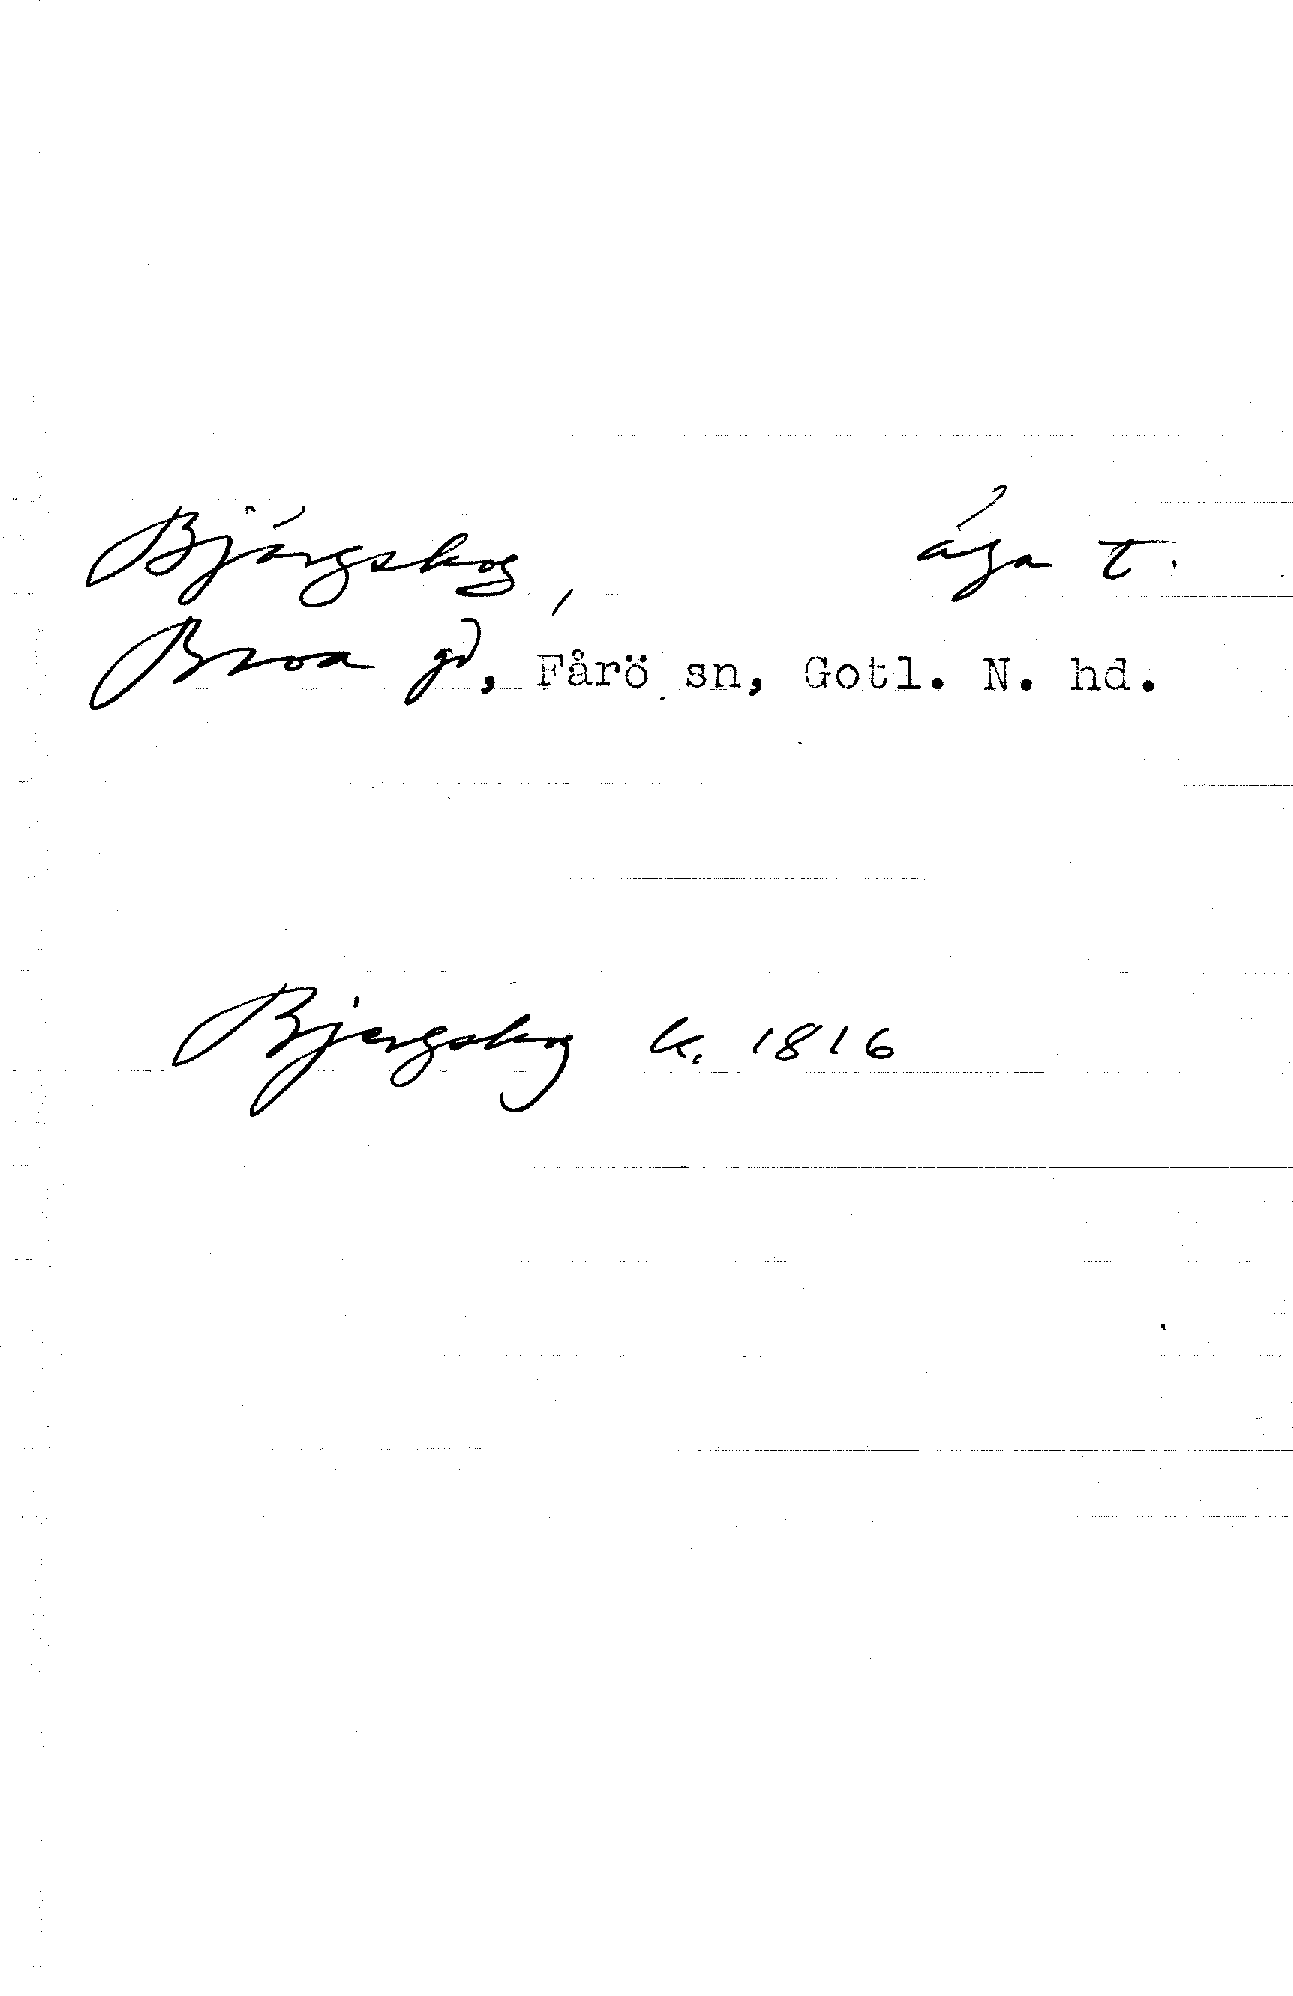 Bjärgskog, äga t.
Broa gd, Fårö sn, Gotl. N. hd.
Bjergskog k. 1816